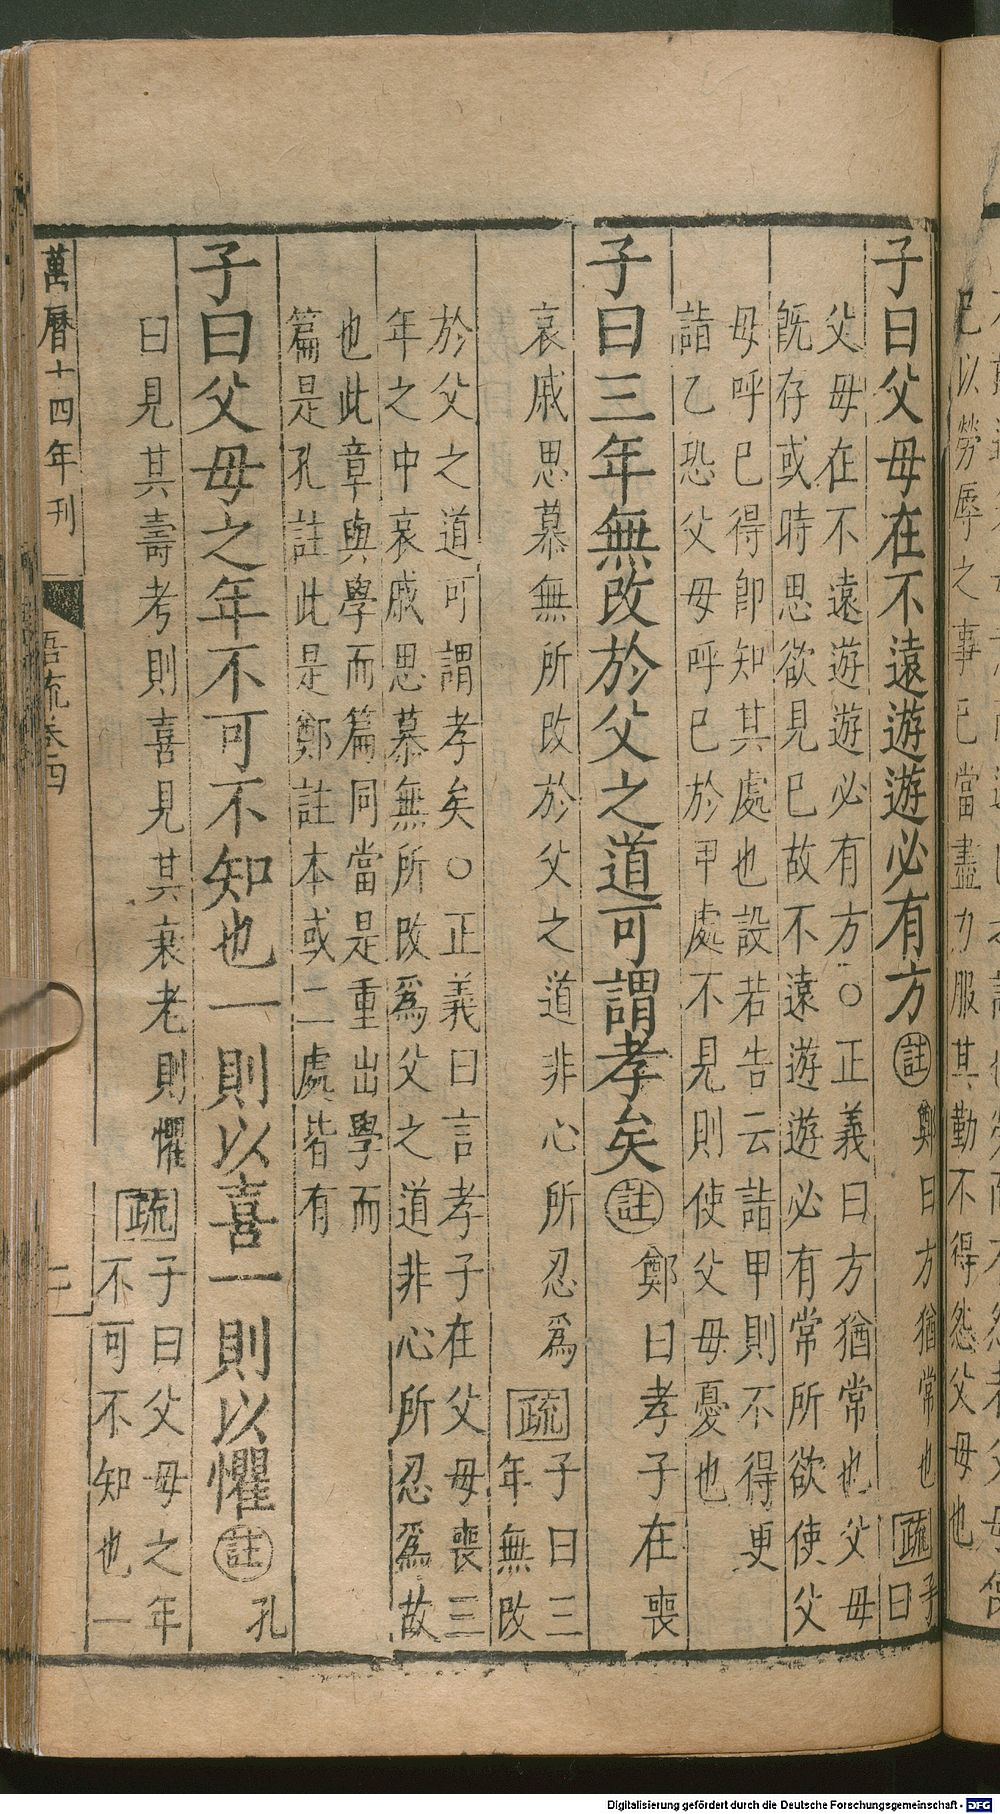 已以勞辱之事已當盡力服其勤不得怨父母也
子曰父母在不遠遊遊必有方註鄭曰方猶常也疏子
曰
父母在不遠遊遊必有方○正義曰方猶常也父母
既存或時思欲見已故不遠遊遊必有常所欲使父
母呼已得卽知其處也設若告云詣甲則不得更
詣乙恐父母呼已於甲處不見則使父母憂也
子曰三年無改於父之道可謂孝矣註鄭曰孝子在喪
哀戚思慕無所改於父之道非心所忍爲疏子曰三
年無改
於父之道可謂孝矣○正義曰言孝子在父母喪三
年之中哀戚思慕無所改爲父之道非心所忍爲故
也此章與學而篇同當是重出學而
篇是孔註此是鄭註本或二處皆有
子曰父母之年不可不知也一則以喜一則以懼註孔
曰見其壽考則喜見其衰老則懼疏子曰父母之年
不可不知也一
萬曆十四年刊
吾疏卷四
Digitalisierung gefördert durch die Deutsche Forschungsgemeinschaft - DFG